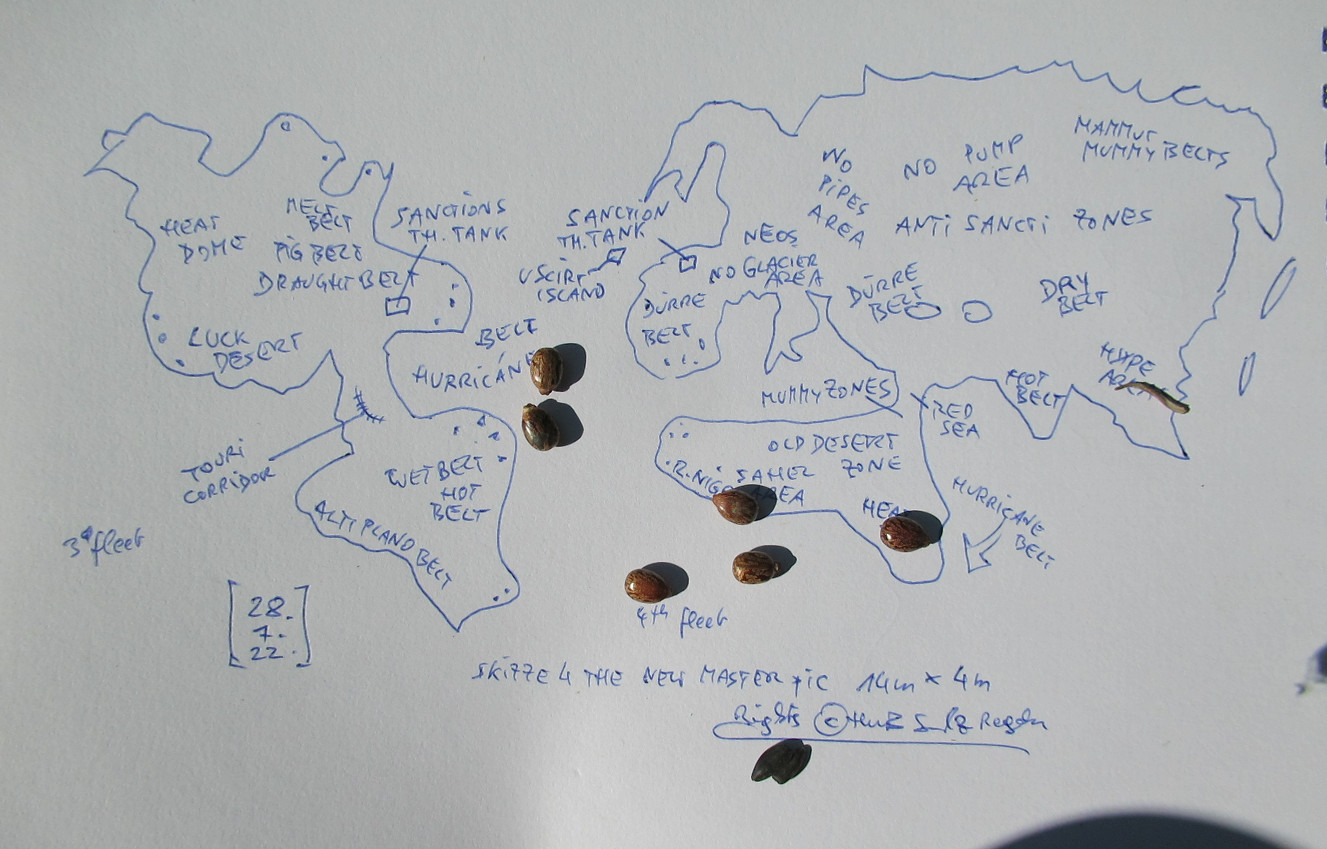 HEAT
DOME
MELT
BELT
PIG BELT
DRAUGHT BELT
SANCTIONS
TH. TANK
LUCK
DESERT
BELT
HURRICANE
TOURI
CORRIDOR
WET BELT
HOT
BELT
ALTIPLANO BELT
3rd fleet
28.
7.
22.
SANCTION
TH. TANK
ISLAND
DÜRRE
BELT
NEOS
NO GLACIER
AREA
NO
PIPES
AREA
NO PUMP
AREA
MAMMUT
MUMMY BELTS
ANTI SANCTI ZONES
DÜRRE
BELT
DRY
BELT
HYPE
HOT
BELT
MUMMY ZONES
RED
SEA
OLD DESERT
ZONE
SAHEL
AREA
HURRICANE
BELT
4th fleet
SKIZZE 4 THE NEW MASTER PIC 14m × 4m
Rights ©